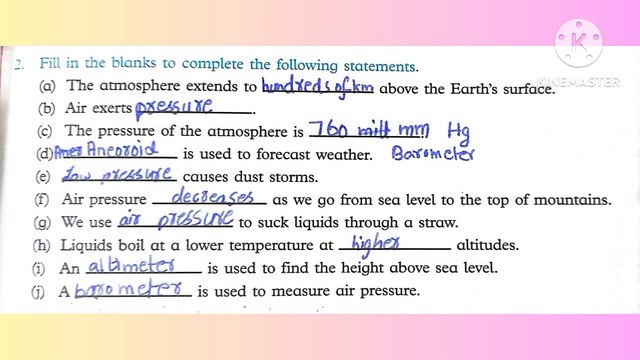 K
KINEMASTER
2. Fill in the blanks to complete the following statements.
(a) The atmosphere extends to hundreds of km above the Earth's surface.
(b) Air exerts pressure.
(c) The pressure of the atmosphere is 760 mm Hg
(d) Aneoroid is used to forecast weather. Barometer
(e) Low pressure causes dust storms.
(f) Air pressure decreases as we go from sea level to the top of mountains.
(g) We use air pressure to suck liquids through a straw.
(h) Liquids boil at a lower temperature at higher altitudes.
(i) An altimeter is used to find the height above sea level.
(j) A barometer is used to measure air pressure.